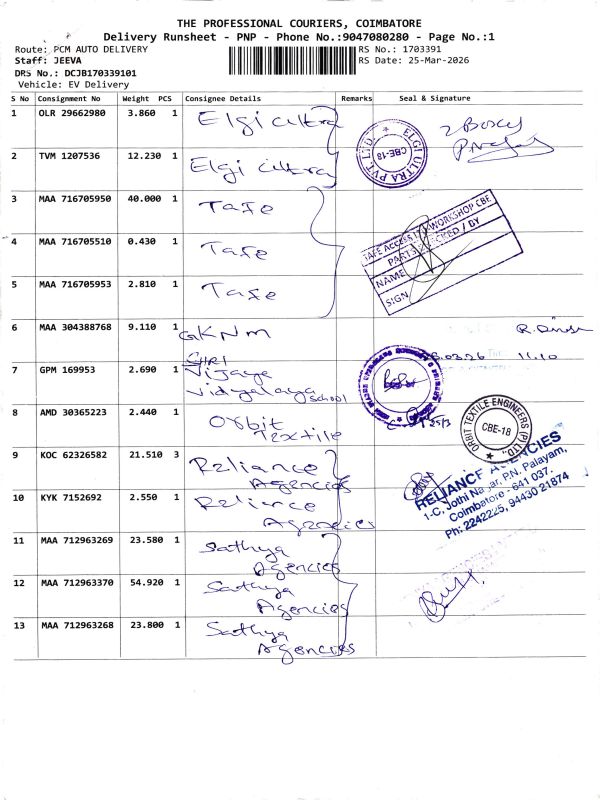 THE PROFESSIONAL COURIERS, COIMBATORE
Delivery Runsheet - PNP - Phone No.:9047080280 - Page No.:1
Route: PCM AUTO DELIVERY
RS No.: 1703391
Staff: JEEVA
RS Date: 25-Mar-2026
DRS No.: DCJB170339101
Vehicle: EV Delivery
S No Consignment No Weight PCS Consignee Details Remarks Seal & Signature
1 OLR 29662980 3.860 1 Elgi ultra
2 Boxes
ELGI ULTRA PVT. LTD. CBE-18
2 TVM 1207536 12.230 1 Elgi ultra
3 MAA 716705950 40.000 1 Tafe
4 MAA 716705510 0.430 1 Tafe
TAFE ACCESS WORKSHOP CBE
PARTS CKED / BY
NAME
SIGN
5 MAA 716705953 2.810 1 Tafe
6 MAA 304388768 9.110 1 GKNM
03.26 11.10
7 GPM 169953 2.690 1 GIRI
Vijaya
Vidyalaya School
8 AMD 30365223 2.440 1 Orbit
Textile
ORBIT TEXTILE ENGINEERS (P) LTD. CBE-18
9 KOC 62326582 21.510 3 Reliance
Agencies
RELIANCE AGENCIES
1-C, Jothi Nagar, P.N. Palayam,
Coimbatore - 641 037.
Ph: 2242225, 94430 21874
10 KYK 7152692 2.550 1 Reliance
Agencies
11 MAA 712963269 23.580 1 Sathya
Agencies
12 MAA 712963370 54.920 1 Sathya
Agencies
13 MAA 712963268 23.800 1 Sathya
Agencies